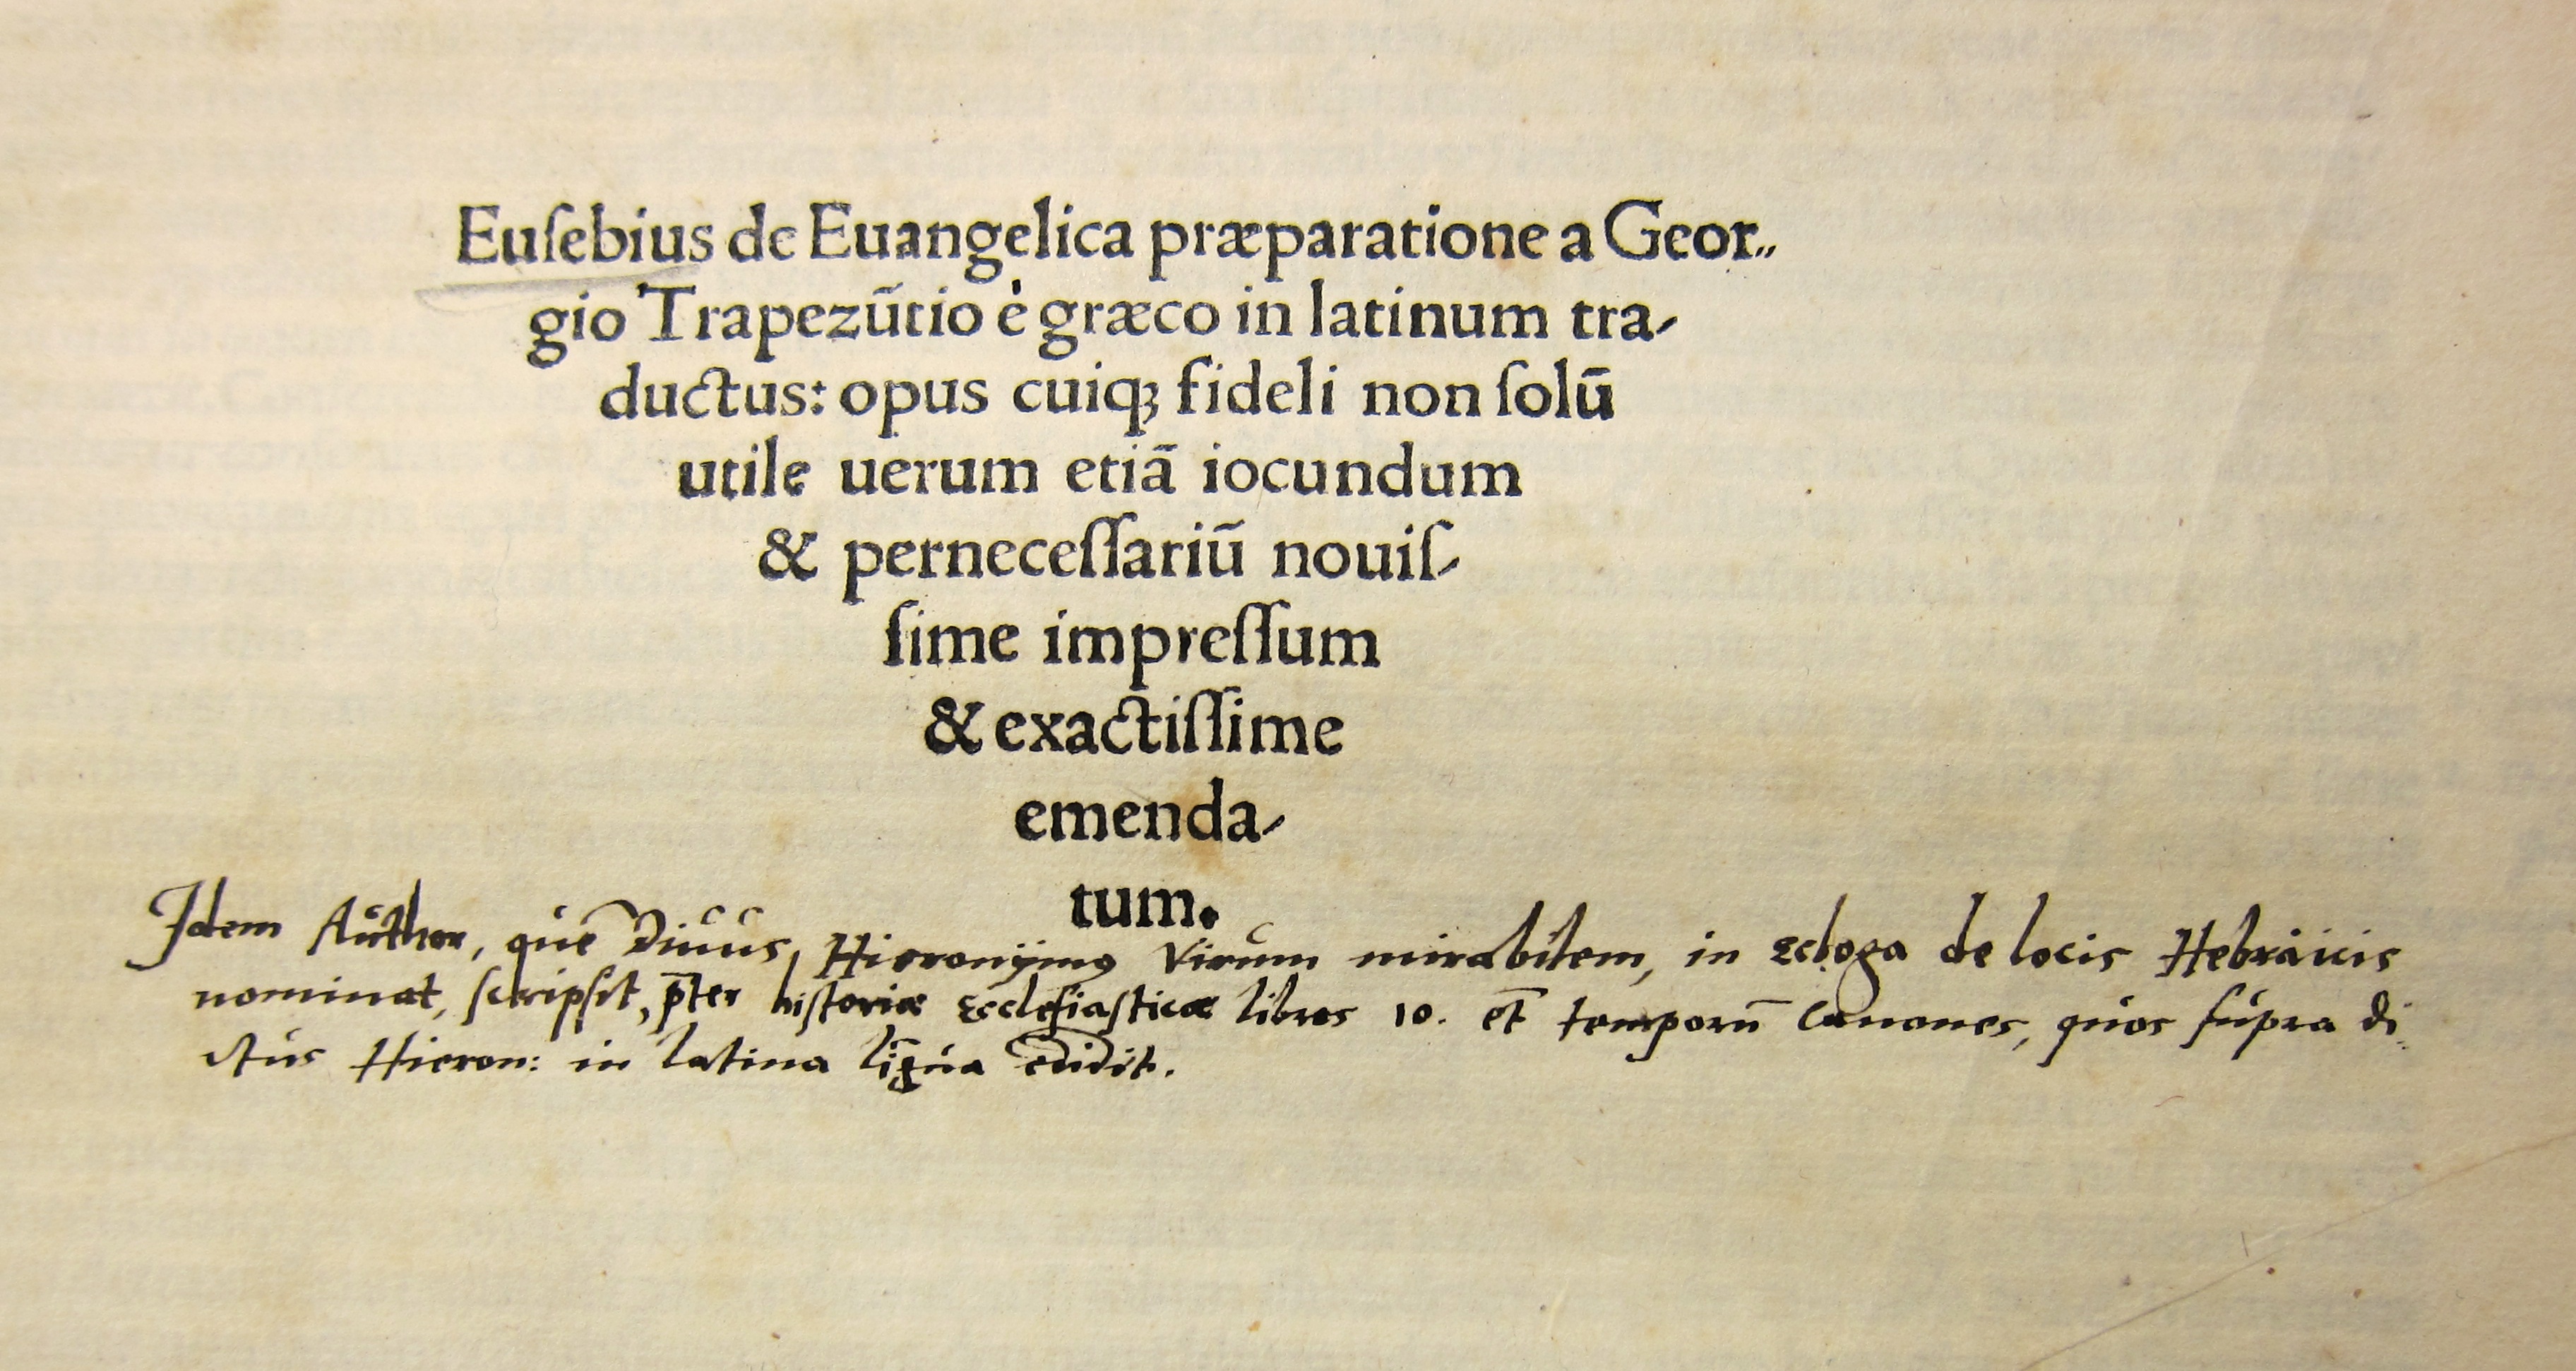 Euſebius de Euangelica præparatione a Geor„
gio Trapezūtio è græco in latinum tra-
ductus: opus cuiqꝫ fideli non ſolū
utile uerum etiā iocundum
& perneceſſariū nouiſ-
ſime impreſſum
& exactiſſime
emenda-
tum.
Idem Author, quē Diuus Hieronÿmꝰ Virum mirabilem, in Ecloga de locis Hebraicis
nominat, ſcripſit, p̄ter hiſtoriæ Eccleſiaſticæ libros 10. et temporū Canones, quos ſupra di
ctus Hieron: in latina līgua edidit.